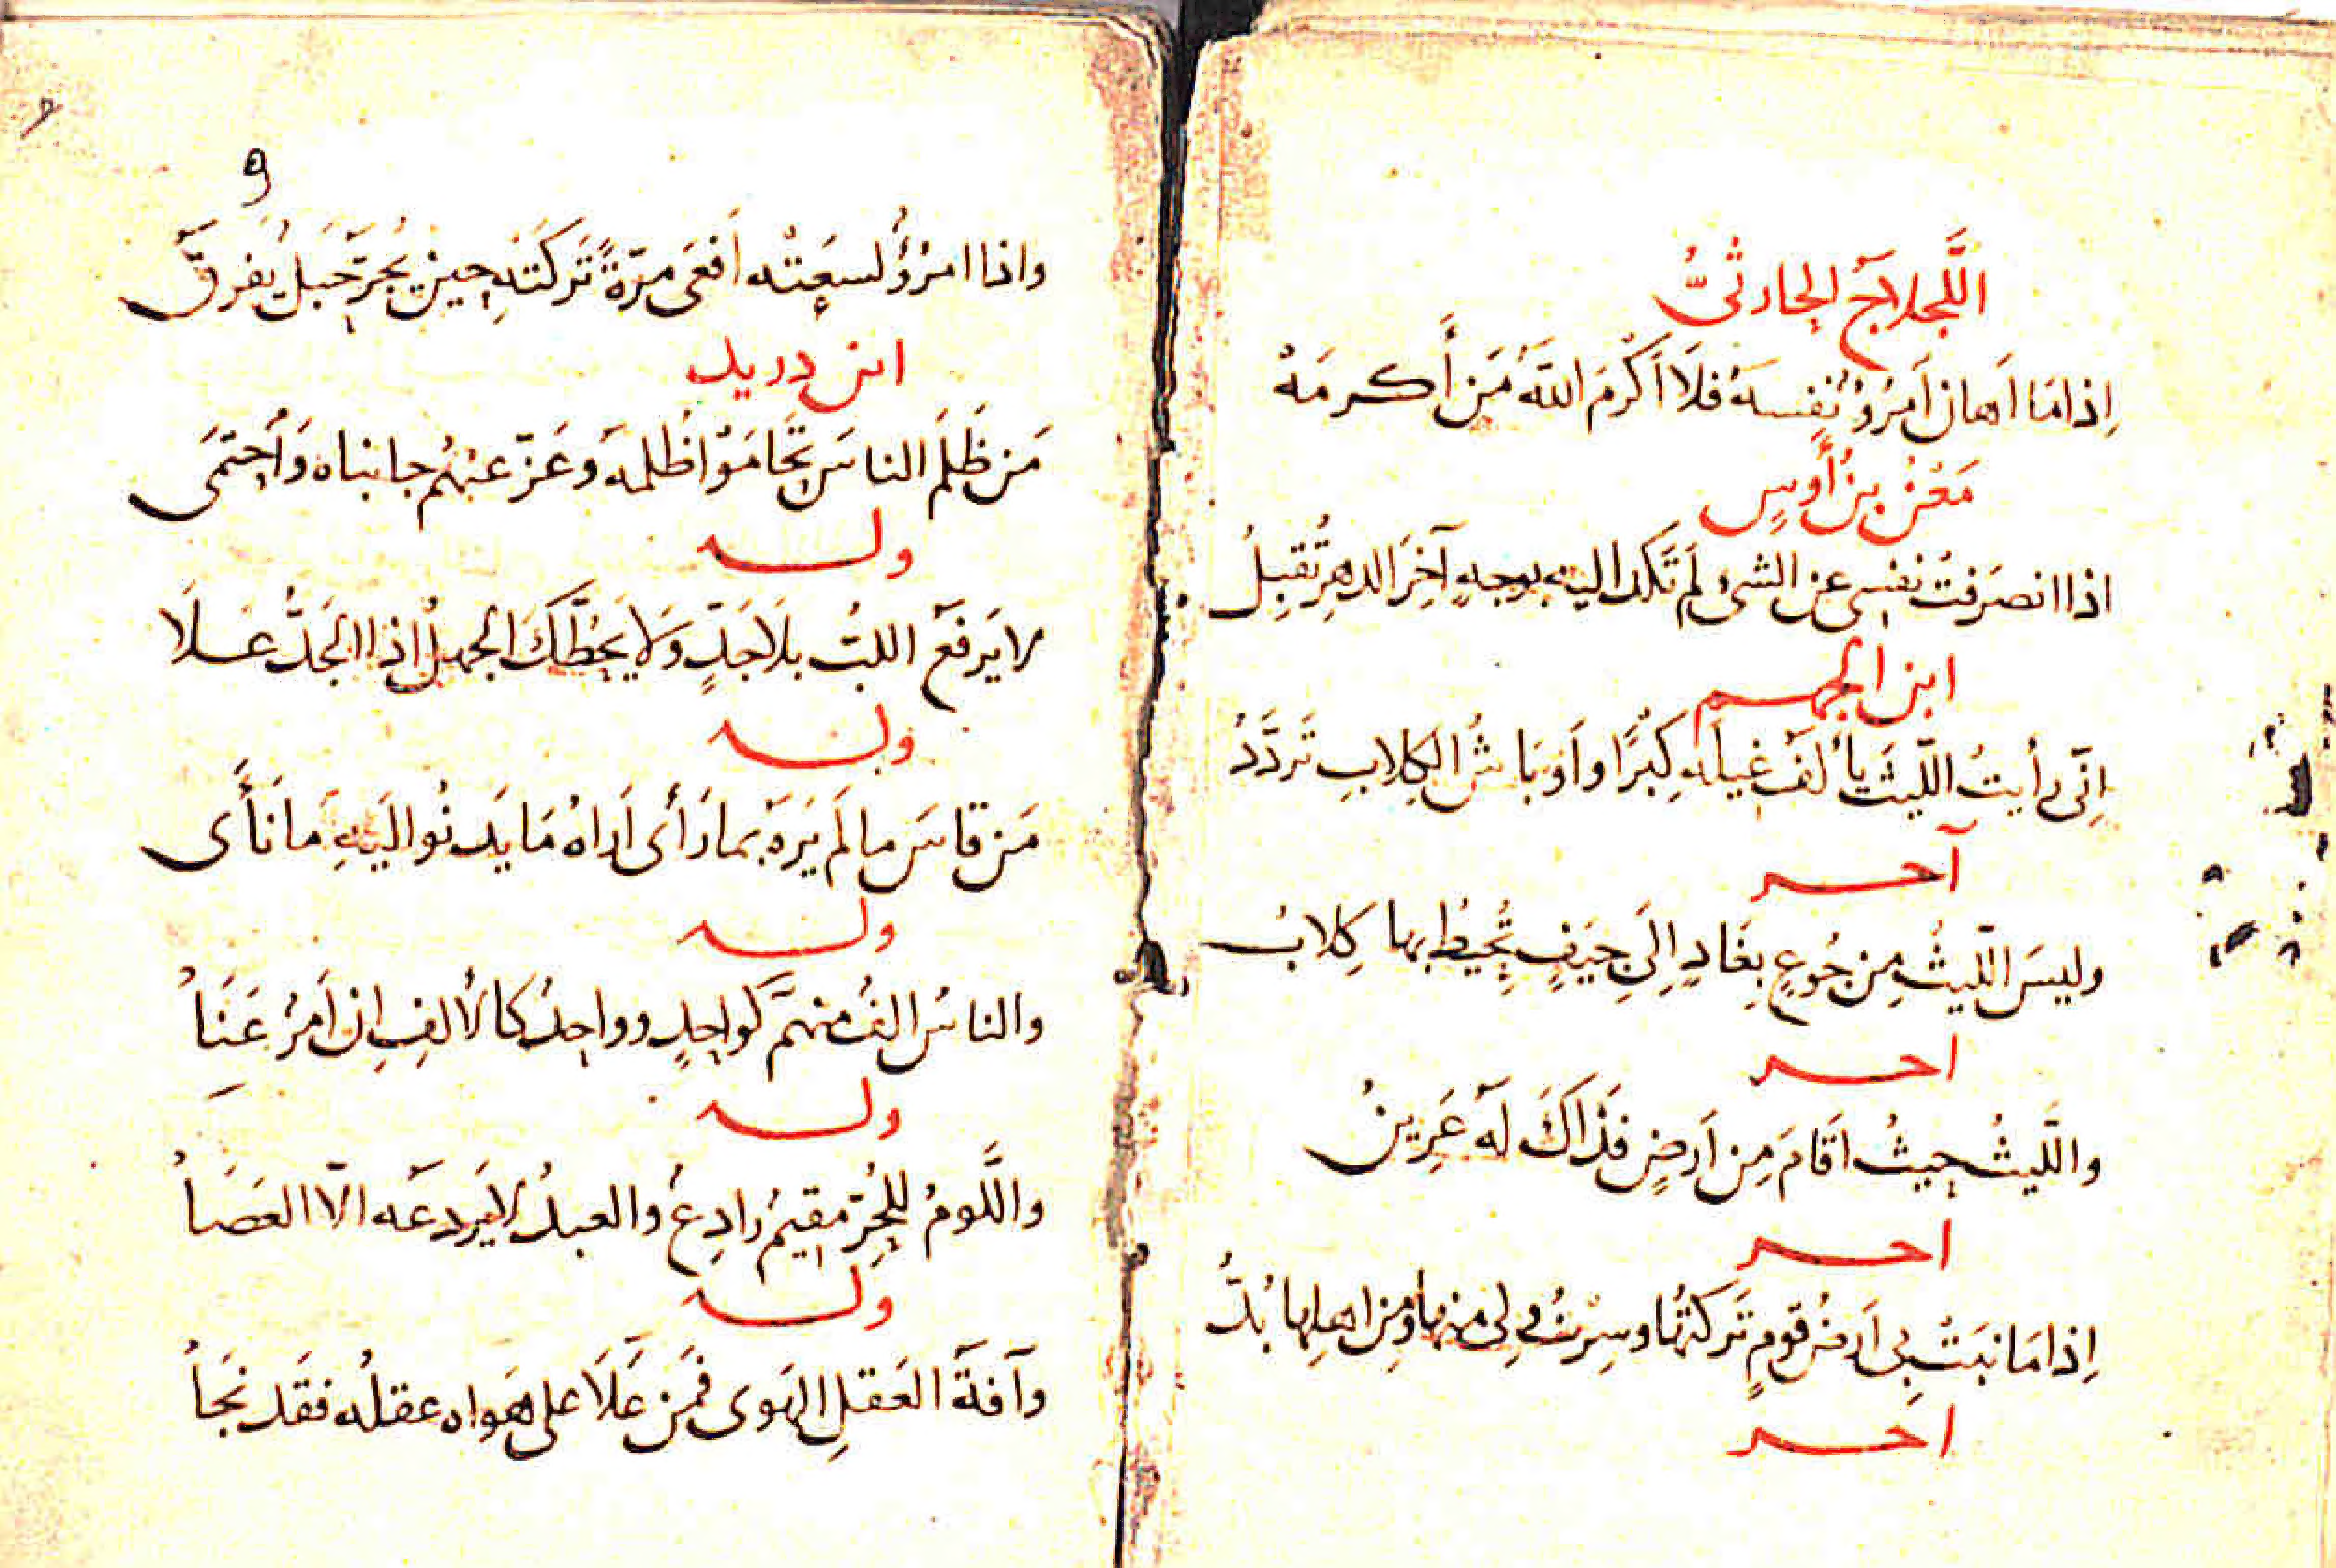 اللَّجلاجُ الحارثيُّ
اِذا مَا اَهان اَمرُؤٌ نفِسهُ فلَا اَكرَمَ اللّهُ مَن أَكرمَهْ
مَعْنُ بنُ أَوسٍ
اذا انصَرفَتْ نفسِى عن الشئ لم تَكد اليه بوجهٍ آخِرَ الدهرِ تُقبِلُ
ابن الجهم
اِنّى رأيتُ اللّيثَ يأْلَفُ غِيلَه كِبْرًا واَوبَاشُ الكِلابِ تَردَّدُ
آخر
وليسَ اللّيثُ مِن جُوعٍ بِغَادٍ اِلَى جِيَفٍ تُحِيطُ بها كِلابُ
اخر
واللَّيثُ حيثُ اَقامَ مِن اَرضٍ فَذَاكَ لَه عَرِينُ
اخر
اِذا مَا نبَتْ بِى اَرضُ قومٍ تَركتُها وسِرْتُ ولِى منها ومِن اهلِها بُدُّ
اخر
9
واذا امرُؤٌ لسعَتْه اَفعَى مرّةً تَركَتْه حين يُجرّ حَبلٌ يَفرقُ
ابن دريد
مَن ظَلَمَ الناسَ تَحَامَوْا ظُلمَه وَعَزّ عنهُم جانباه وَاَحتمَى
وله
لا يَرفَعُ اللبُّ بلَا جَدٍّ وَلَا يَحُطّكَ الجهلُ اذا الجَدُّ عَلَا
وله
مَن قاسَ ما لَم يَرَهُ بما رَأى اَراهُ مَا يَدنُو اليَهِ مَا نَأَى
وله
والناسُ الفٌ منهَمُ كواحِدٍ وواحِدٌ كالألفِ اِن اَمرٌ عَنَا
وله
واللَّومُ للحُرّ مقيمٌ رادِعٌ والعبدُ لا يَردعُه الّا العَصَا
وله
وآفةُ العَقلِ الهَوى فمَن عَلَا على هَواه عقلُه فقَد نَجَا